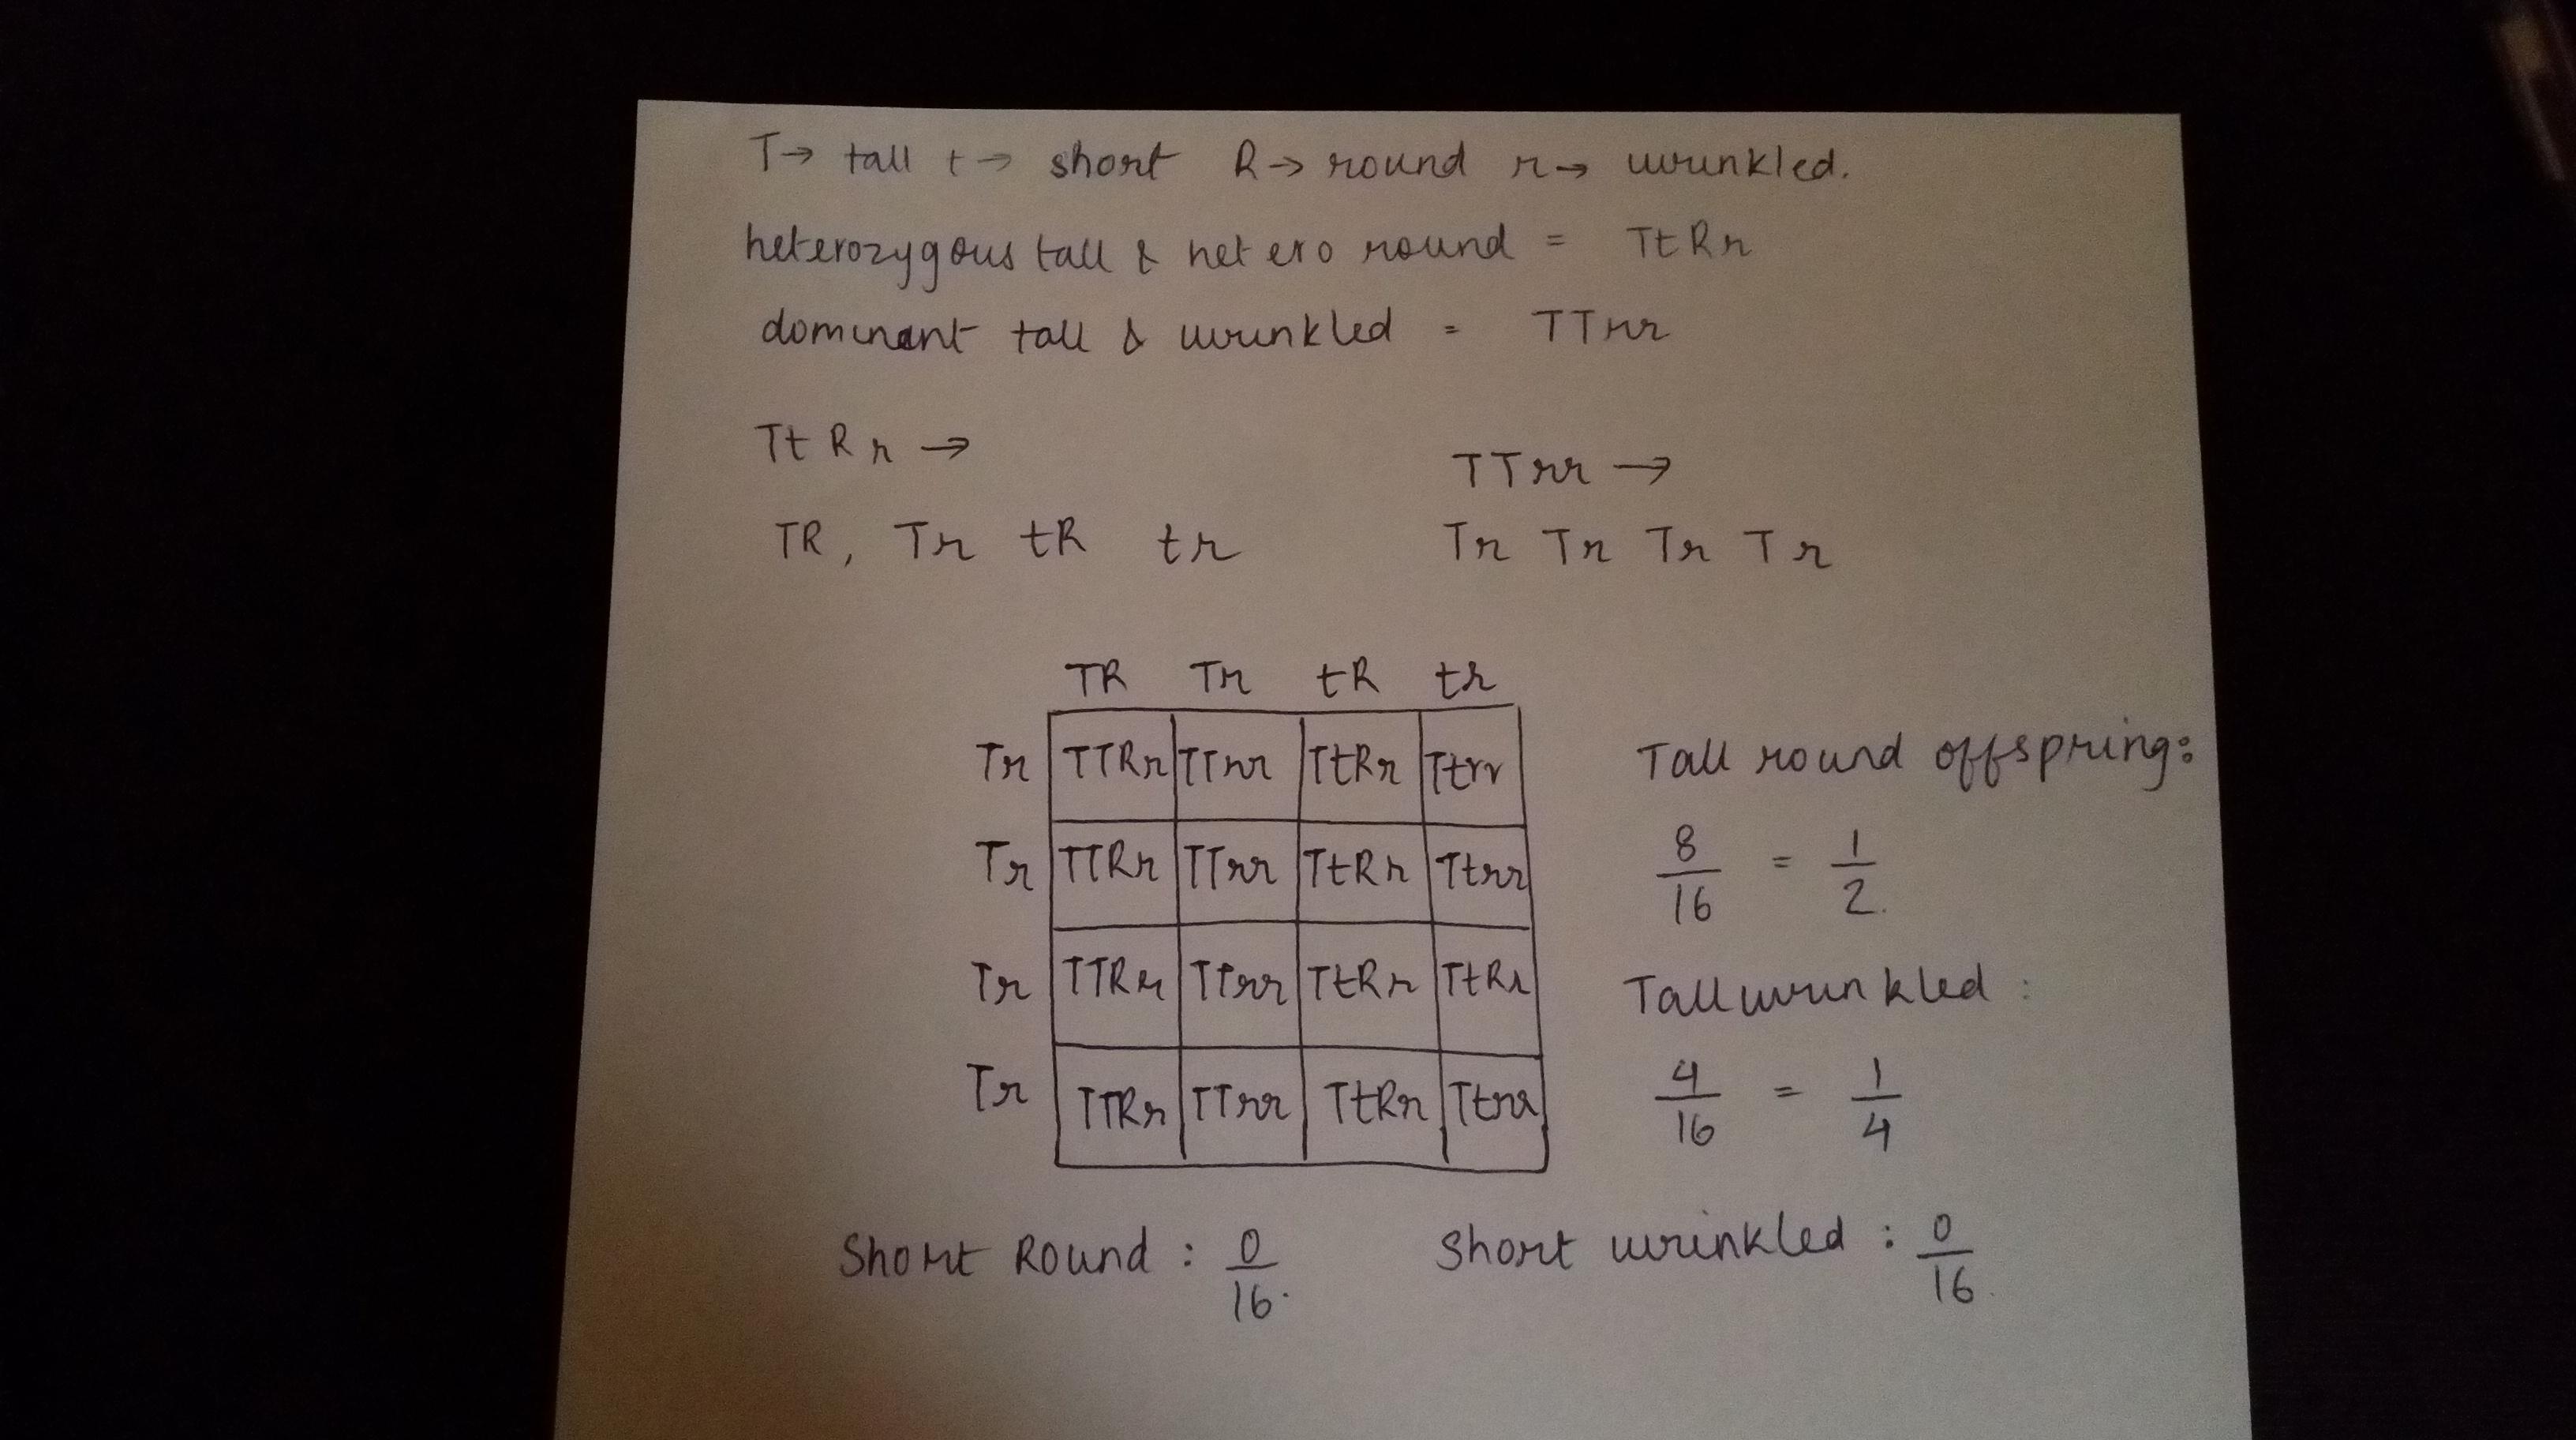 T→ tall t→ short R→ round r→ wrinkled.
heterozygous tall & hetero round = TtRr
dominant tall & wrinkled = TTrr
TtRr →
TTrr →
TR, Tr tR tr
Tr Tr Tr Tr
TR Tr tR tr
Tr TTRr TTrr TtRr Ttrr
Tr TTRr TTrr TtRr Ttrr
Tr TTRr TTrr TtRr TtRr
Tr TTRr TTrr TtRr Ttrr
Tall round offspring:
8/16 = 1/2.
Tall wrinkled :
4/16 = 1/4
Short Round : 0/16.
Short wrinkled : 0/16.